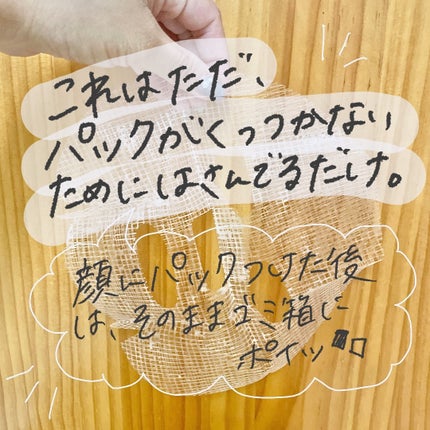 これはただ、
パックがくっつかない
ためにはさんでるだけ。
顔にパックつけた後
は、そのままゴミ箱に
ポイッ